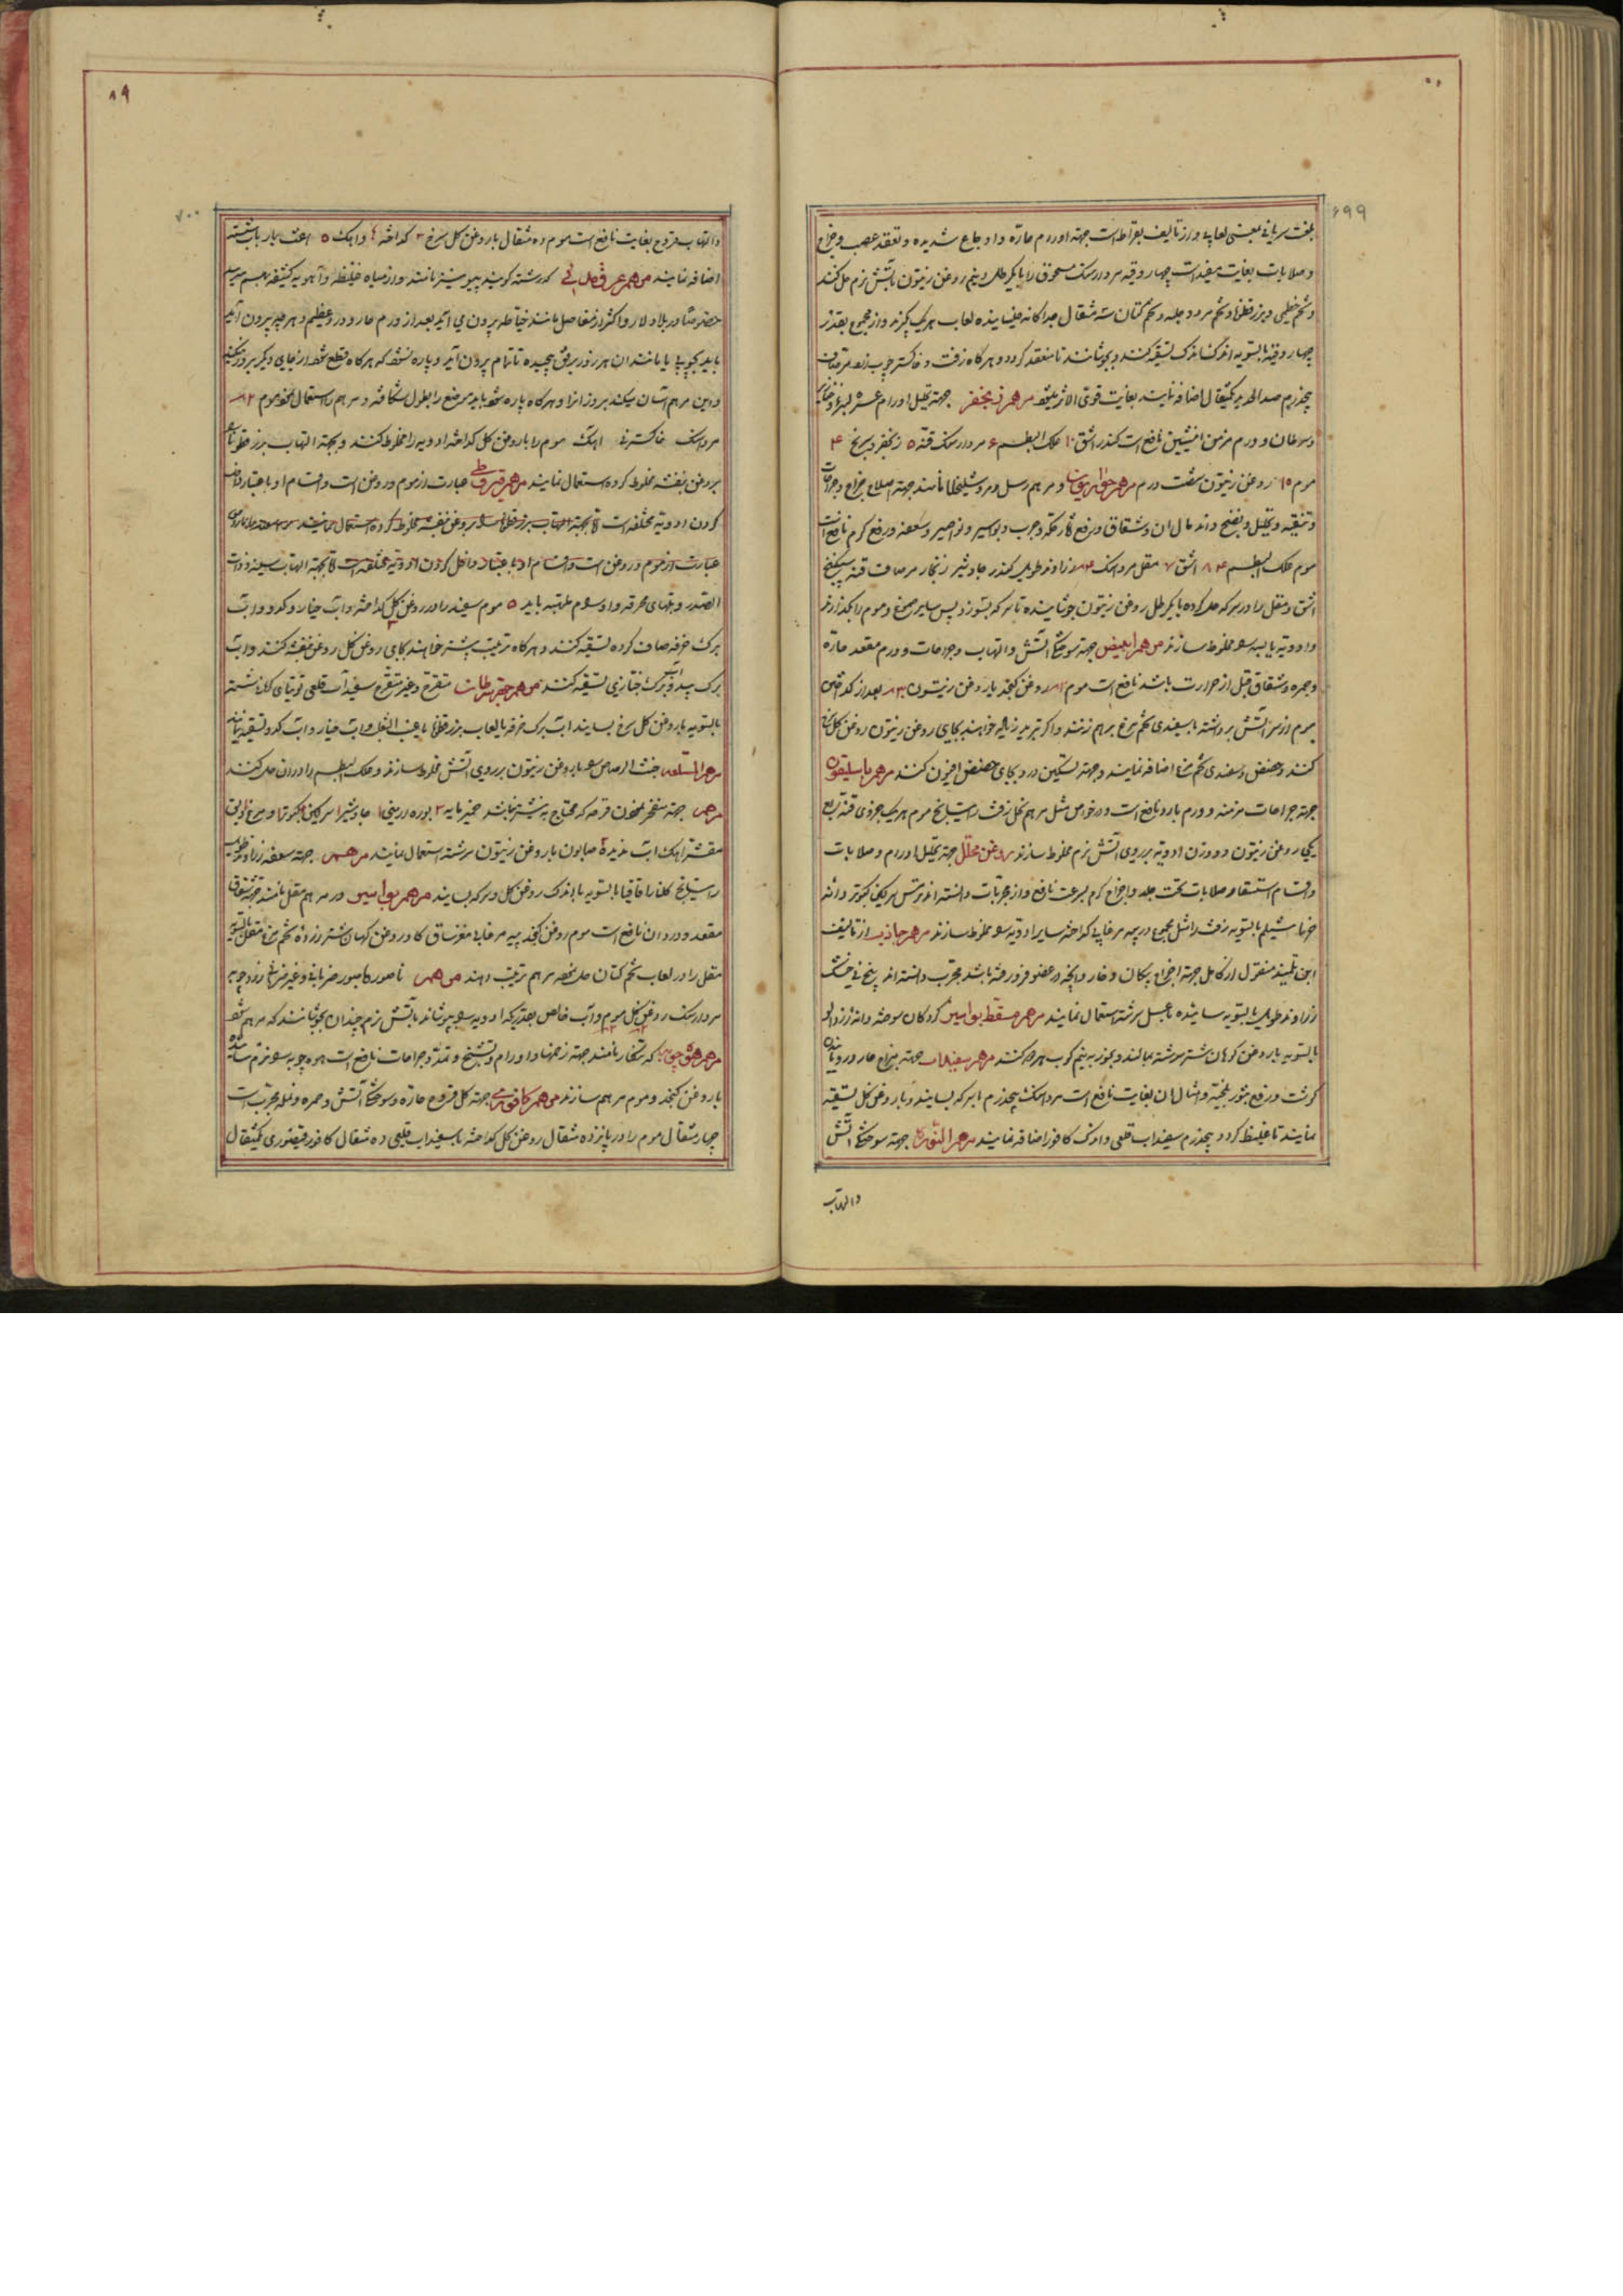 ۶۹۹
بلغت سریانی بمعنی لعابی و از تالیف بقراط است جهة اورام حارّه و اوجاع شدیده و تعقد عصب و خراج
و صلابات بغایت مفید است چهار وقیه مردارسنک مسحوق را با یکرطل و نیم روغن زیتون بآتش نرم حل کنند
و تخم خطمی و بزرقطونا و تخم مرو و حلبه و تخم کتان سه مثقال جداکانه خیسانیده لعاب هریک بگیرند و از مجموع بقدر
چهار وقیه بالسویه اندک اندک تسقیه کنند و بجوشانند تا منعقد کردد و هرکاه زفت و خاکستر چوب
پنجدرم صدا الحدید یکمثقال اضافه نمایند بغایت قوی الاثر میشود مرهم زنجفر جهة تحلیل اورام عسره
و سرطان و ورم مزمن انثیین نافع است کندر اشق ۱۰ علک البطم ۶ مردارسنک قنه ۵ زنجفر ۴
موم ۱۵ روغن زیتون هفت درم مرهم حواریون و مرهم رسل و مرهم شلیخا نامند جهة اصلاح خراج و جراحات
و تنقیه و تحلیل و نضج دانه مال ان و شقاق و رفع آثار حکه و جرب و بواسیر و نواصیر و سعفه و رفع کرم نافع است
موم علک البطم ۸۴ اشق ۷ مقل مرداسنک ۴ زراوند طویل کندر جاوشیر زنجار مر صاف قنه سکبینج
اشق و مقل را در سرکه حل کرده با یکرطل روغن زیتون جوشانیده تا سرکه بسوزد پس سایر صموغ و موم را بکدازند
و ادویه یابسه مخلوط سازند مرهم ابیض جهة سوختکی آتش و التهاب و جراحات و ورم مقعد حارّه
و حمره و شقاق قبل از حرارت باشد نافع است موم روغن کنجد یا روغن زیتون ۳ بعد از کداختن
موم از سر آتش برداشته با سفیدی تخم مرغ برهم زنند و اکر تبرید زیاده خواهند بجای روغن زیتون روغن کل سرخ
کنند و حضض و سفیدی تخم مرغ اضافه نمایند و جهة تسکین درد بجای حضض افیون کنند مرهم باسلیقون
جهة جراحات مزمنه و ورم بارد نافع است و در خواص مثل مرهم نخل زفت راتینج موم هریک جزوی قنه ربع
یکی روغن زیتون دو وزن ادویه بر روی آتش نرم مخلوط سازند روغن محلل جهة تحلیل اورام و صلابات
و اقسام استسقا و صلابات تحت جلد و اخراج کرم بسرعت نافع و از مجربات دانسته اند ترمس سرکین کبوتر دانه
شیلم بالسویه زفت را مثل مجموع در پیه مرغابی کداخته سایر ادویه مخلوط سازند مرهم جاذب از تالیف
ابن تلمیذ منقول از کامل جهة اخراج پیکان و خار و آنچه در عضو فرورفته باشد مجرب دانسته اند بیخ نی خشک
زراوند طویل بالسویه ساییده با عسل سرشته استعمال نمایند مرهم مسقط بواسیر کردکان سوخته و آنه زردالو
بالسویه با روغن کوهان شتر سرشته بمالند و بخور به نیم کوب بهر کنند مرهم سفیداب جهة خراج حار و رویانیدن
کوشت و رفع بثور بلخیه و امثال ان بغایت نافع است مرداسنک پنجدرم با سرکه بسایند و با روغن کل تسقیه
نمایند تا غلیظ کردد پنجدرم سفیداب قلعی و دانک کافور اضافه نمایند مرهم النوره جهة سوختکی آتش
والتهاب
۸۹
۷۰۰
والتهاب قروح بغایت نافع است موم ده مثقال با روغن کل سرخ ۳ کداخته و اهک ۵ هفت بار باب شسته
اضافه نمایند مرهم عرق مدنی که رشته کویند و پیوسته نامند و از میاه غلیظه و آهویه کثیفه بهم میرسد
خصوصا در بلاد لار و اکثر از مفاصل مانند خیاطه بیرون می آید بعد از ورم حار و درد عظیم و هرچه بیرون آید
باید بچوب یا مانند ان هر روز برفق پیچیده تا تمام بیرون آید و پاره نشود که هرکاه قطع شود از جای دیکر بروز میکند
و این مرهم آسان میکند بروز انرا و هرکاه پاره شود باید موضع را بطول شکافته و مرهم استعمال نمود موم ۲
مرداسنک خاکستر نی اهک موم را با روغن کل کداخته ادویه را مخلوط کنند و بجهة التهاب بزرقطونا
بروغن بنفشه مخلوط کرده استعمال نمایند مرهم قیروطی عبارت از موم و روغن است و اقسام او باعتبار داخل
کردن ادویه مختلفه است
عبارت از موم و روغن است و اقسام او باعتبار داخل کردن ادویه مختلفه است تا بجهة التهاب سینه و ذات
الصدر و تبهای محرقه و اورام ملتهبه باید ۵ موم سفید را در روغن کل کداخته و آب خیار و کدو و آب
برک خرفه صاف کرده تسقیه کنند و هرکاه ترطیب بیشتر خواهند بجای روغن کل روغن بنفشه کنند و آب
برک بید و برک خبازی تسقیه کنند مرهم جهة سرطان متقرح و غیر متقرح سفیداب قلعی توتیای کلان شسته
بالسویه با روغن کل سرخ بسایند اب برک خرفه یا لعاب بزرقطونا یا عنب الثعلب و آب خیار و آب کدو تسقیه نمایند
مرهم السلعه خبث الرصاص با روغن زیتون بر روی آتش مخلوط سازند و علک البطم را در ان حل کنند
مرهم جهة منفجر نمودن قرحه که محتاج به نیشتر نباشد خمیرمایه ۳ بوره ارمنی ۱ جاوشیر سرکین کبوتر
مقشر اهک آب ندیده صابون با روغن زیتون سرشته استعمال نمایند مرهم جهة سعفه زراوند طویل
راتینج کلنار اقاقیا بالسویه با اندک روغن کل و سرکه بسایند مرهم بواسیر و مرهم مقل نامند جهة شقاق
مقعد و درد ان نافع است موم روغن کنجد پیه مرغابی مغز ساق کاو روغن کوهان شتر زرده تخم مرغ مقل بالسویه
مقل را در لعاب تخم کتان حل نموده مرهم ترتیب دهند مرهم ناصور کامور ضربانی و غیر ضربانی زردچوبه
مردارسنک روغن کل موم و آب خالص بقدریکه ادویه را بپوشاند بآتش نرم چندان بجوشانند که مرهم شود
مرهم هوه چوبه که شنکار نامند جهة زخمها و اورام و تشنج و تمدد و جراحات نافع است هوه چوبه نرم ساییده
با روغن کنجد و موم مرهم سازند مرهم کافوری جهة کل قروح حارّه و سوختکی آتش و حمره و نمله مجربست
چهار مثقال موم را در پانزده مثقال روغن کل کداخته با سفیداب قلعی ده مثقال کافور قیصوری یکمثقال